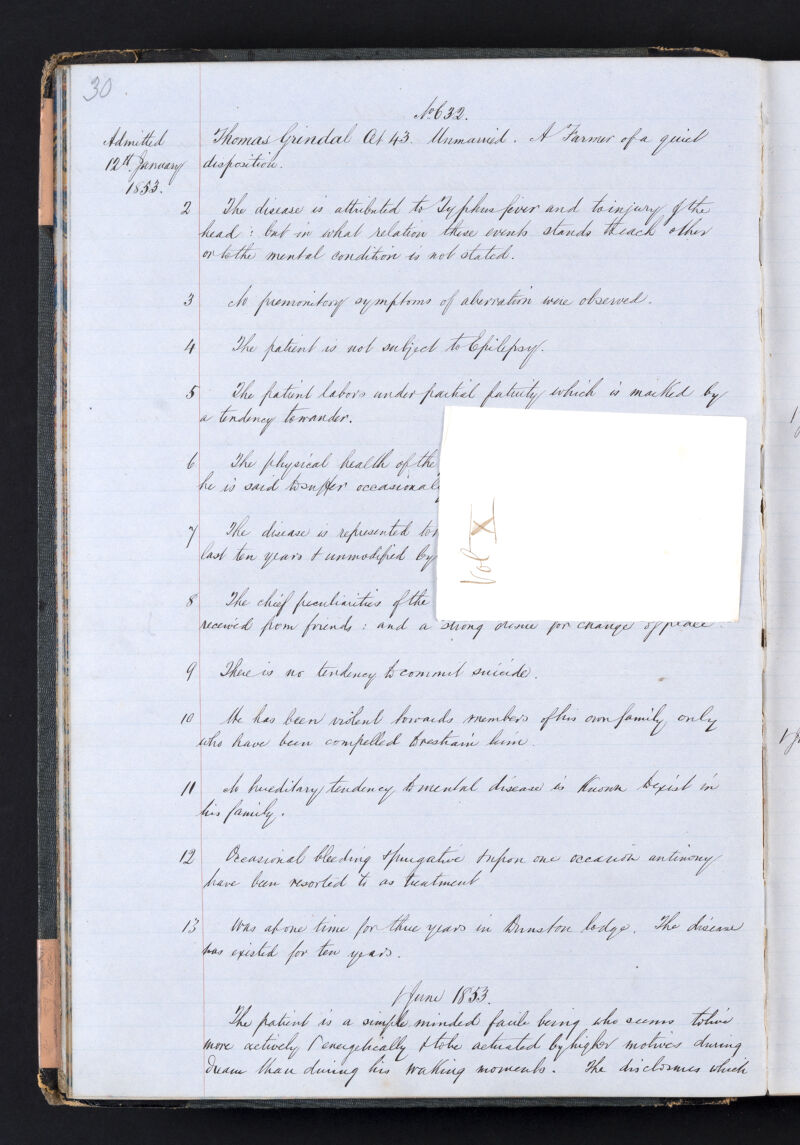 30
No 632.
Admitted
12th January
1853.
Thomas Grindal Æt 43. Unmarried. A Farmer of a quiet
disposition.
2 The disease is attributed to Typhus fever and to injury of the
head: but in what relation these events stands to each other
or to the mental condition is not stated.
3 No premonitory symptoms of aberration were observed.
4 The patient is not subject to Epilepsy.
5 The patient labors under partial fatuity which is marked by
a tendency to wander.
6 The physical health of the
he is said to suffer occasional
7 The disease is represented to
last ten years & unmodified by
8 The chief peculiarities of the
received from friends: and a strong desire for change of place.
Vol X
9 There is no tendency to commit suicide.
10 He has been violent towards members of his own family only
who have been compelled to restrain him.
11 No hereditary tendency to mental disease is known to exist in
his family.
12 Occasional bleeding & purgative & upon one occasion antimony
have been resorted to as treatment
13 Was at one time for three years in Dunston lodge. The disease
has existed for ten years.
1 June 1853.
The patient is a simple minded facile being who seems to live
more actively & energetically & to be actuated by higher motives during
dream than during his waking moments. The disclosures which